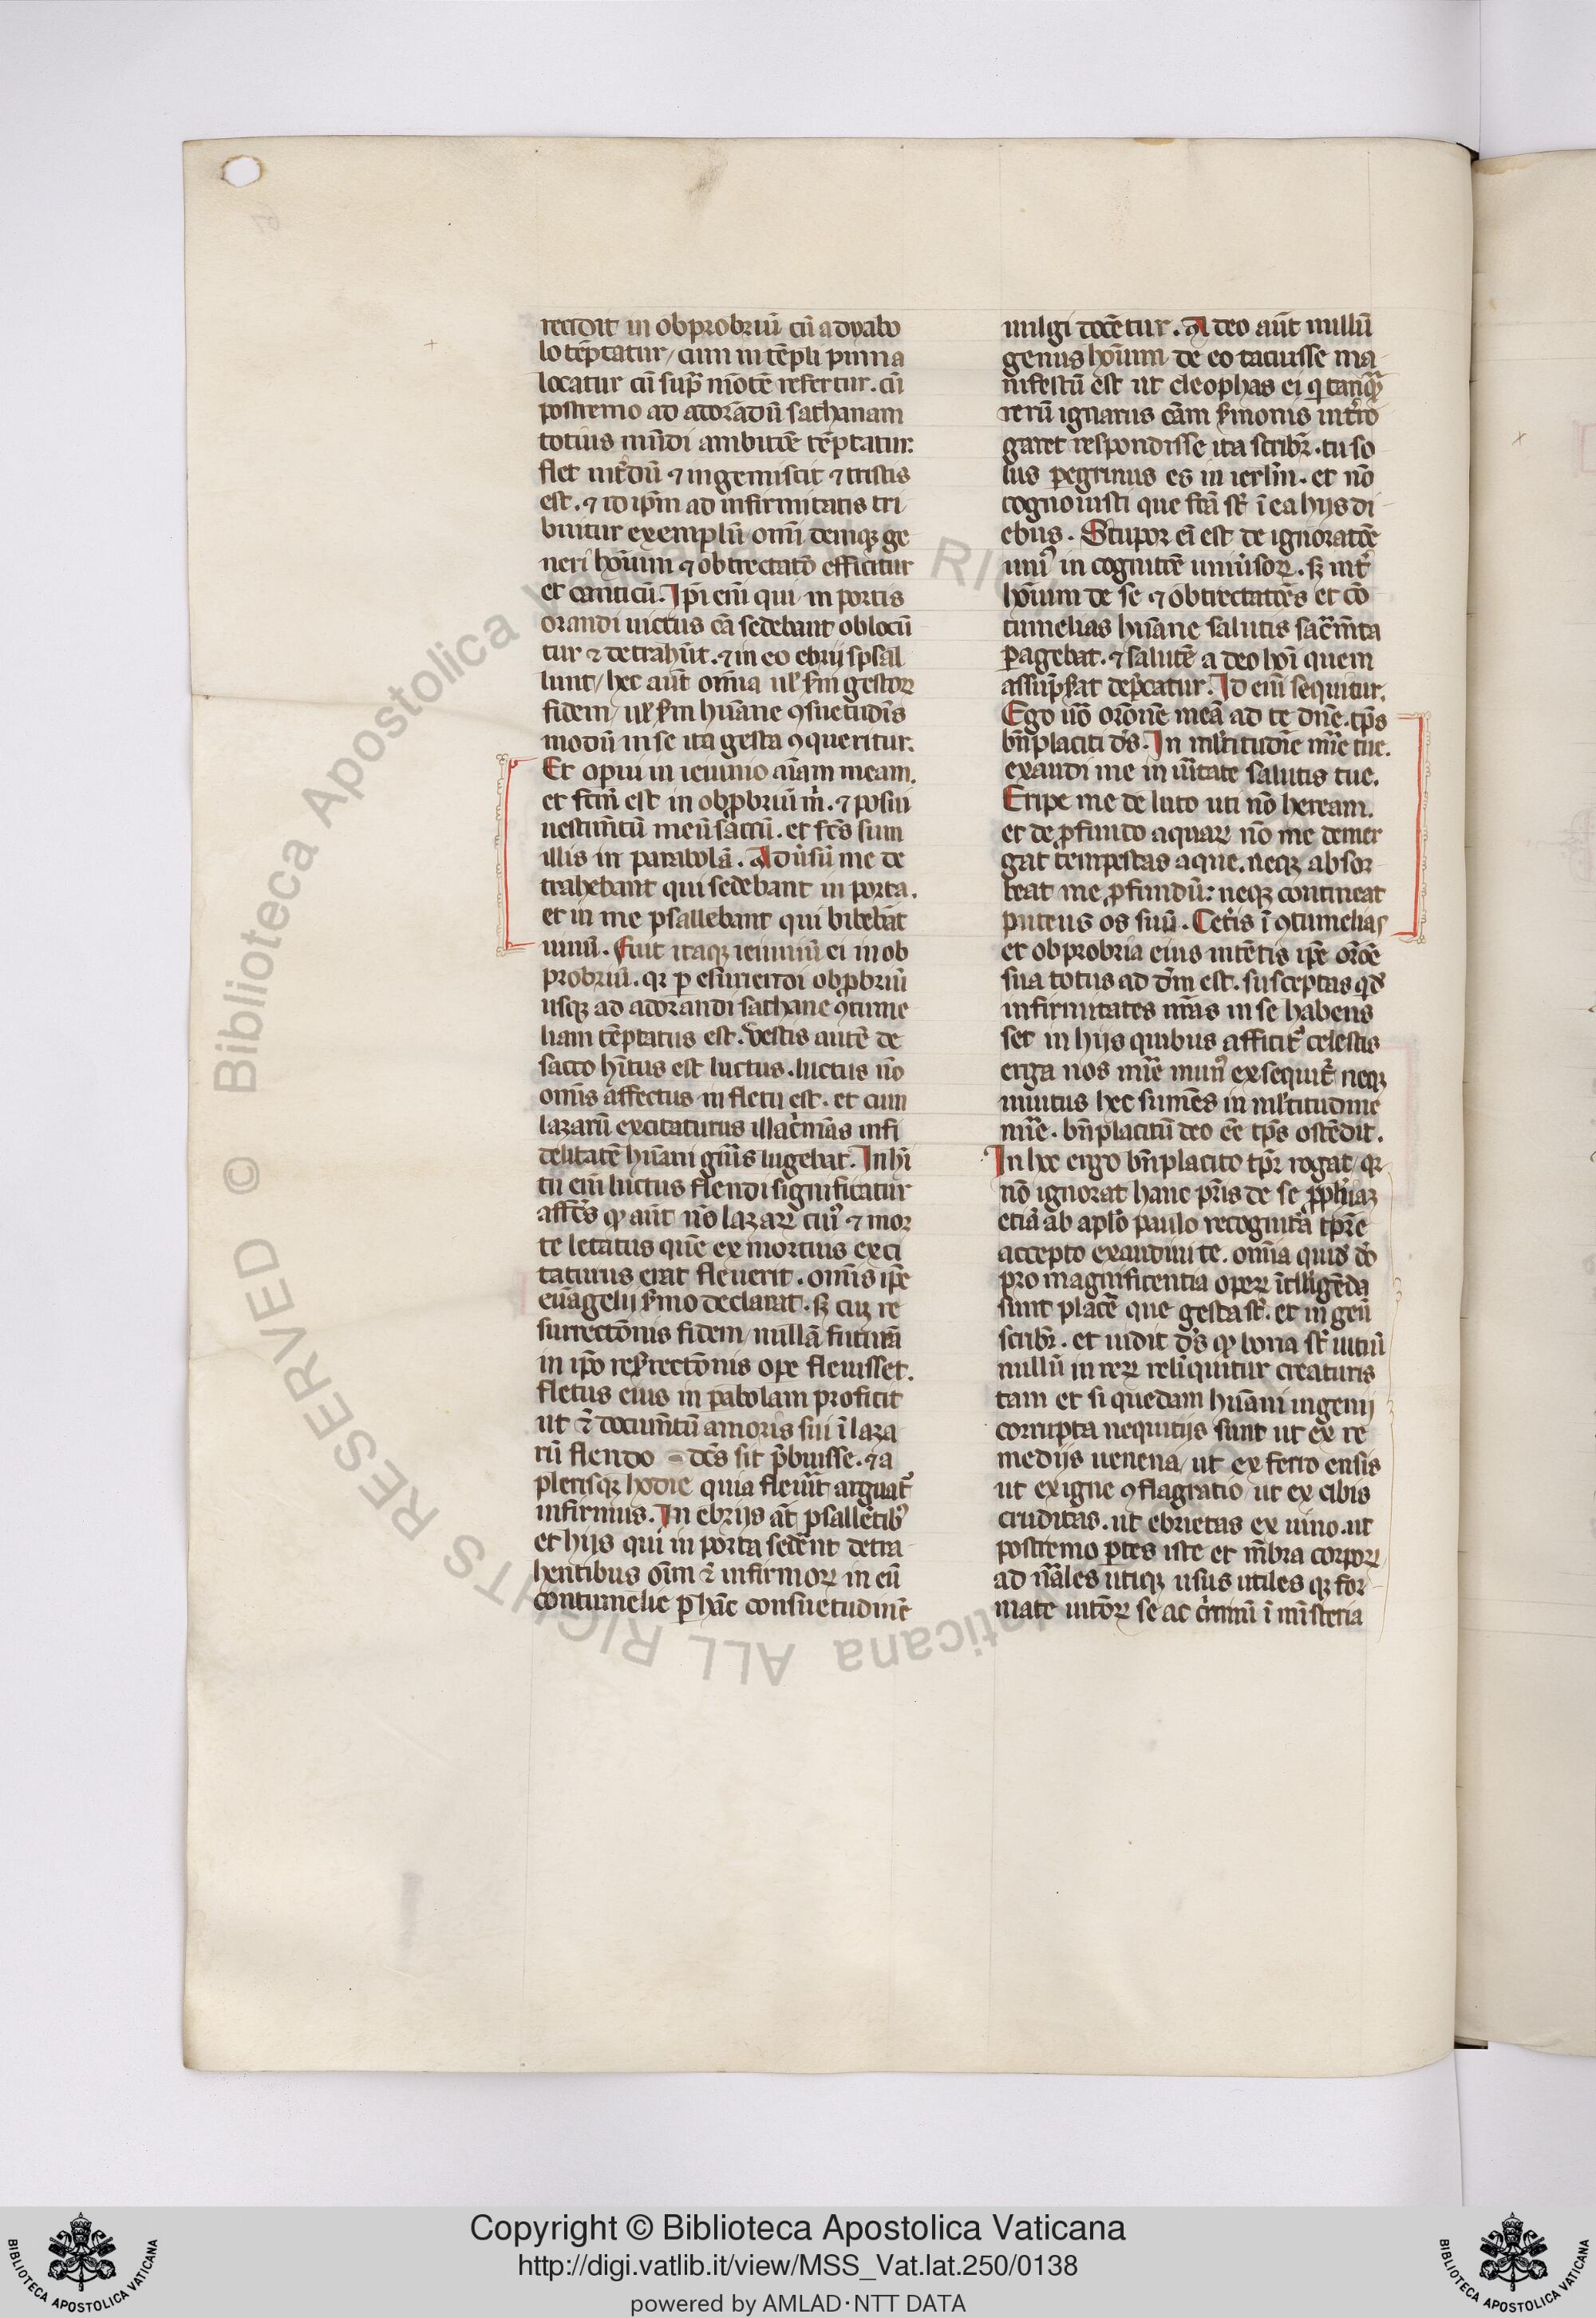 recidit in obprobriū cū a dyabo
lo tēptatur / cum in tēpli pinna
locatur cū supͣ mōtē refertur . cū
postremo ad adorādū sathanam
totius mūdi ambitōe tēptatur.
flet int̾dū ⁊ ingemiscit ⁊ tristis
est . ⁊ id ip̄m ad infirmitatis tri
buitur exemplū om̄i deniqꝫ ge
neri hoīum ⁊ obtrectatō efficitur
et canticū . Ip̄i enī qui in portis
orandi uictus cā sedebant oblocū
tur ⁊ detrahūt . ⁊ in eo ebrij spsal
lunt / hec aūt om̄ia ul̾ s̾m gestoꝝ
fidem / ul̾ s̾m hūane ꝯsuetudīs
modū in se ita gesta ꝯqueritur.
Et operui in ieiunio aīam meam.
et fc̄m est in obꝓbriū m̄ . ⁊ posui
uestimētū meū saccū . et fc̄s sum
illis in parabolā . Adūsū me de
trahebant qui sedebant in porta .
et in me psallebant qui bibebāt
uinū . Fuit itaqꝫ ieiuniū ei in ob
probriū . qꝛ ꝑ esuriendi obꝓbriū
usqꝫ ad adorandi sathane ꝯtume
liam tēptatus est . Vestis autē de
sacco hītus est luctus . luctus ūo
omīs affectus in fletu est . et cum
lazarū excitaturus illac̾mās infi
delitatē hūani gn̄is lugebat . In hī
tu enī luctus flendi significatur
affc̄s ꝙ aūt nō lazarꝝ cuiꝰ ⁊ mor
te letatus quē ex mortuis exci
taturus erat fleuerit . omīs ip̄e
euāgelij s̾mo declarat . sꝫ cuꝫ re
surrectōnis fidem / nullā futurā
in ip̄o res̾rectōnis ope fleuisset .
fletus eius in ꝑabolam proficit
ut ⁊̄ documētū amoris sui ī laza
rū flendo dc̄s sit p̄buisse . ⁊ a
plerisqꝫ hodie quia fleuit̄ arguat̾
infirmus . In ebrijs āt psallētibꝰ
et hijs qui in porta sedent detra
hentibus oīm ⁊̄ infirmoꝝ in eū
contumelie ꝑ hāc consuetudinē
uulgi docētur . Adeo aūt nullū
genus hoīum de eo tacuisse ma
nifestū est ut cleophas ei q tanqͣ
rerū ignarus cām s̾monis int̾ro
garet respondisse ita scribr̄ . tu so
lus pegrinus es in ierl̄m . et nō
cognouisti que fc̄a st̄ ī ea hijs di
ebus . Stupor eī est de ignoratōe
uniꝰ in cognitōe uniūsoꝝ . sꝫ int̾
hoīum de se ⁊ obtrectatōes et cō
tumelias hūane salutis sac̄mēta
ꝑagebat . ⁊ salutē a deo hoī quem
assūps̾at dep̄catur . Id enī sequitur.
Ego ūo orōnē meā ad te dn̄e . tp̄s
bn̄placiti dꝰs . In ml̾titudīe mīe tue.
exaudi me in ūitate salutis tue.
Eripe me de luto uti nō heream.
et de ꝓfundo aquaꝝ nō me demer
gat tempestas aque . neqꝫ absor
beat me ꝓfundū : neqꝫ contineat
puteus os suū . Cet̾is ī ꝯtumelias
et obprobria eius intētis ip̄e orōe
sua totus ad dm̄ est . susceptas qd̾
infirmitates nr̄as in se habens
set in hijs quibus afficit̾ celestis
erga nos mīe munꝰ exsequit̾ neqꝫ
inuitus hec sumēs in ml̾titudine
mīe . bn̄placitū deo eē tp̄s ostēdit .
In hoc ergo bn̄placito tp̄r rogat / qꝛ
nō ignorat hanc pr̄is de se ꝓph̄iaꝫ
etiā ab apl̄o paulo recognitā tp̄re
accepto exaudiui te . om̄ia quid̾ dō
pro magnificentia operꝝ ītlligēda
sunt placē que gesta st̄ . et in gen̄
scribr̄ . et uidit dꝰs ꝙ bona st̄ uitiū
nullū in reꝝ relīquitur creaturis
tam et si quedam hūani ingenij
corrupta nequitijs sunt ut ex re
medijs uenena / ut ex ferro ensis
ut ex igne ꝯflagratio / ut ex cibis
cruditas . ut ebrietas ex uino . ut
postremo ꝑtes iste et mēbra corporꝝ
ad nāles utiqꝫ usus utiles qꝫ for
mate uitōꝝ se ac c̾iminū ī mīsteria
Copyright © Biblioteca Apostolica Vaticana
http://digi.vatlib.it/view/MSS_Vat.lat.250/0138
powered by AMLAD·NTT DATA
BIBLIOTECA APOSTOLICA VATICANA
BIBLIOTECA APOSTOLICA VATICANA
© Biblioteca Apostolica Vaticana ALL RIGHTS RESERVED